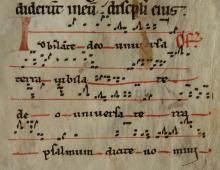 diderunt meū discipli eius
Iubilate deo universa Of
terra iubila te
de o universa te rra
psalmum dicite nomini